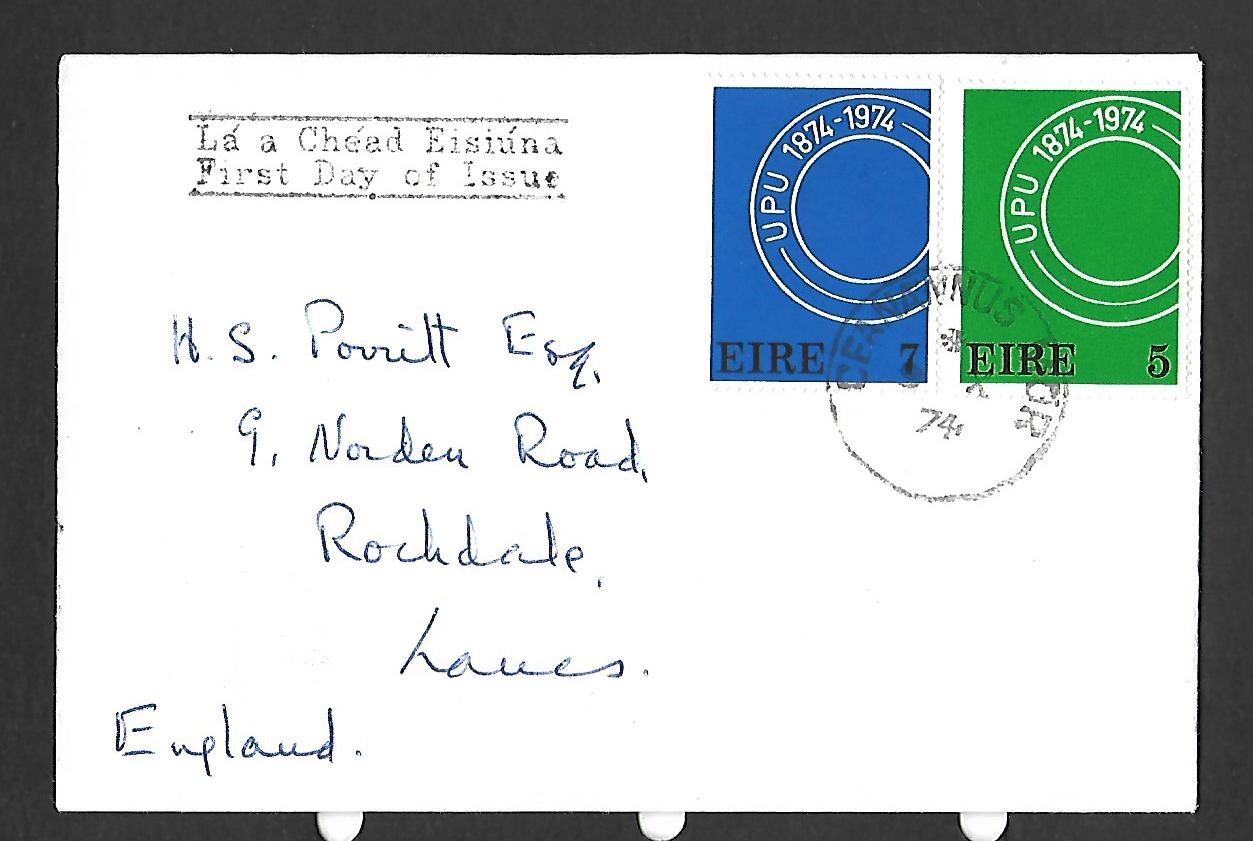 Lá a Chéad Eisiúna
First Day of Issue
UPU 1874-1974
EIRE 7
UPU 1874-1974
EIRE 5
CEANANNUS
74
H. S. Porritt Esq.
9, Norden Road,
Rochdale,
Lancs.
England.